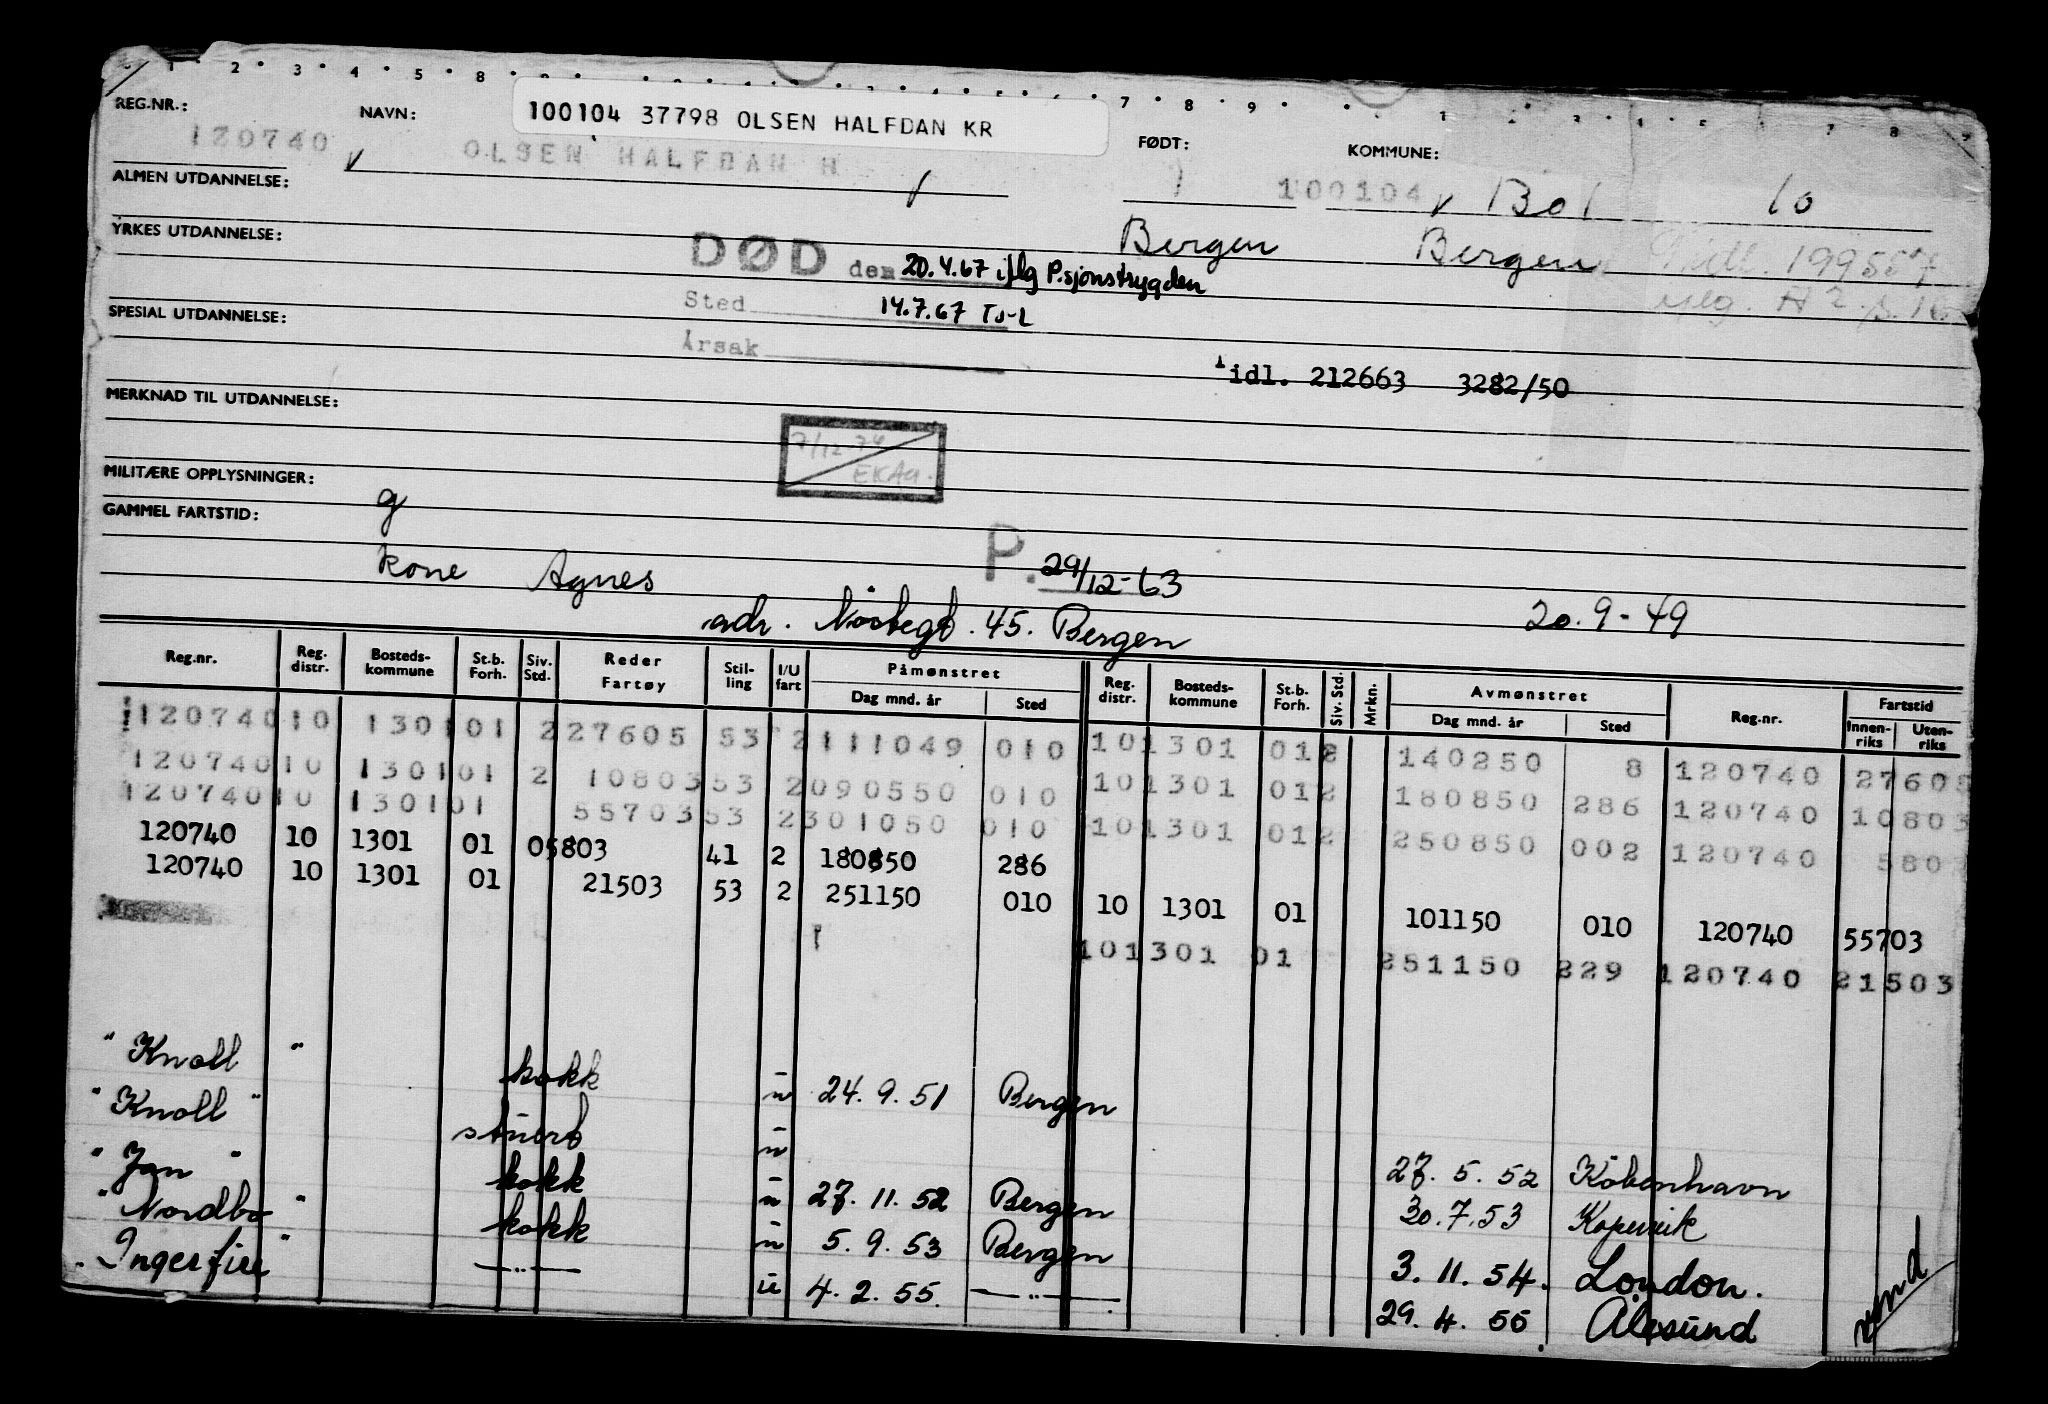 1 2 3 4 5 8 7 8 9
REG.NR.: NAVN: 100104 37798 OLSEN HALFDAN KR FØDT: KOMMUNE:
120740 OLSEN HALFDAN H 100104 1301 10
ALMEN UTDANNELSE:
Bergen Bergen
YRKES UTDANNELSE:
DØD den 20.4.67 iflg P.sjonstrygden
Sted 14.7.67 Ts-L
SPESIAL UTDANNELSE:
Årsak
idl. 212663 3282/50
MERKNAD TIL UTDANNELSE:
7/12-74
EKAa.
MILITÆRE OPPLYSNINGER:
g
GAMMEL FARTSTID:
P. 29/12-63
kone Agnes
20.9-49
adr. Nöstegt. 45. Bergen
Reg.nr. Reg. distr. Bosteds-kommune St.b. Forh. Siv. Std. Reder Fartøy Stil-ling I/U fart Påmønstret Dag mnd. år Sted Reg. distr. Bosteds-kommune St.b. Forh. Siv. Std. Mrkn. Avmønstret Dag mnd. år Sted Reg.nr. Fartstid Innen-riks Uten-riks
120740 10 1301 01 2 27605 53 2 111049 010 10 1301 01 2 140250 8 120740 27605
120740 10 1301 01 2 10803 53 2 090550 010 10 1301 01 2 180850 286 120740 10803
120740 10 1301 01 55703 53 2 301050 010 10 1301 01 2 250850 002 120740 5803
120740 10 1301 01 05803 41 2 180850 286
120740 10 1301 01 21503 53 2 251150 010 10 1301 01 101150 010 120740 55703
10 1301 01 251150 229 120740 21503
" Knoll " kokk u 24. 9. 51 Bergen
" Knoll " stuert u 27. 5. 52 Köbenhavn
" Jan " kokk u 27. 11. 52 Bergen 30. 7. 53 Kopervik
" Nordbo " kokk u 5. 9. 53 Bergen 3. 11. 54. London.
" Ingerfire " —"— u 4. 2. 55. —"— 29. 4. 55 Ålesund
vend